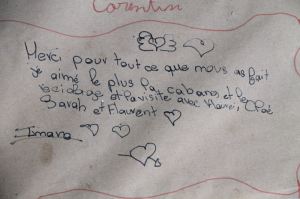 Corentin
Merci pour tout ce que nous as fait
je aimé le plus la cabane et le
et la visite avec
Sarah et Flaurent
Imane